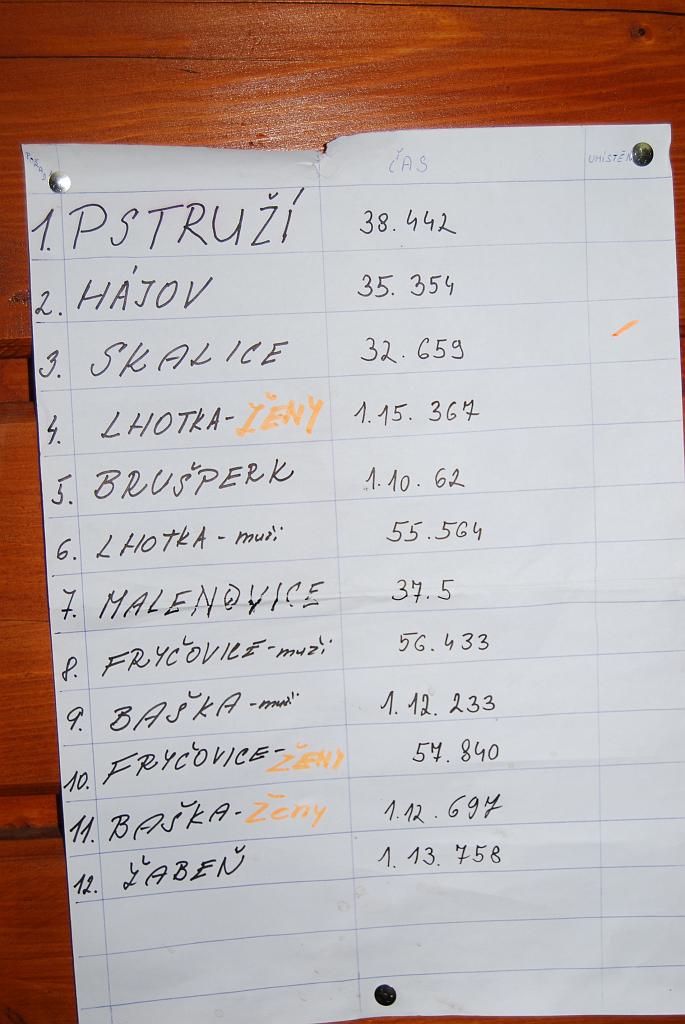 ČAS UMÍSTĚN
1. PSTRUŽÍ 38.442
2. HÁJOV 35.354
3. SKALICE 32.659
4. LHOTKA-ŽENY 1.15.367
5. BRUŠPERK 1.10.62
6. LHOTKA - muži 55.564
7. MALENOVICE 37.5
8. FRYČOVICE-muži 56.433
9. BAŠKA-muži 1.12.233
10. FRYČOVICE-ŽENY 57.840
11. BAŠKA-Ženy 1.12.697
12. ŽABEŇ 1.13.758